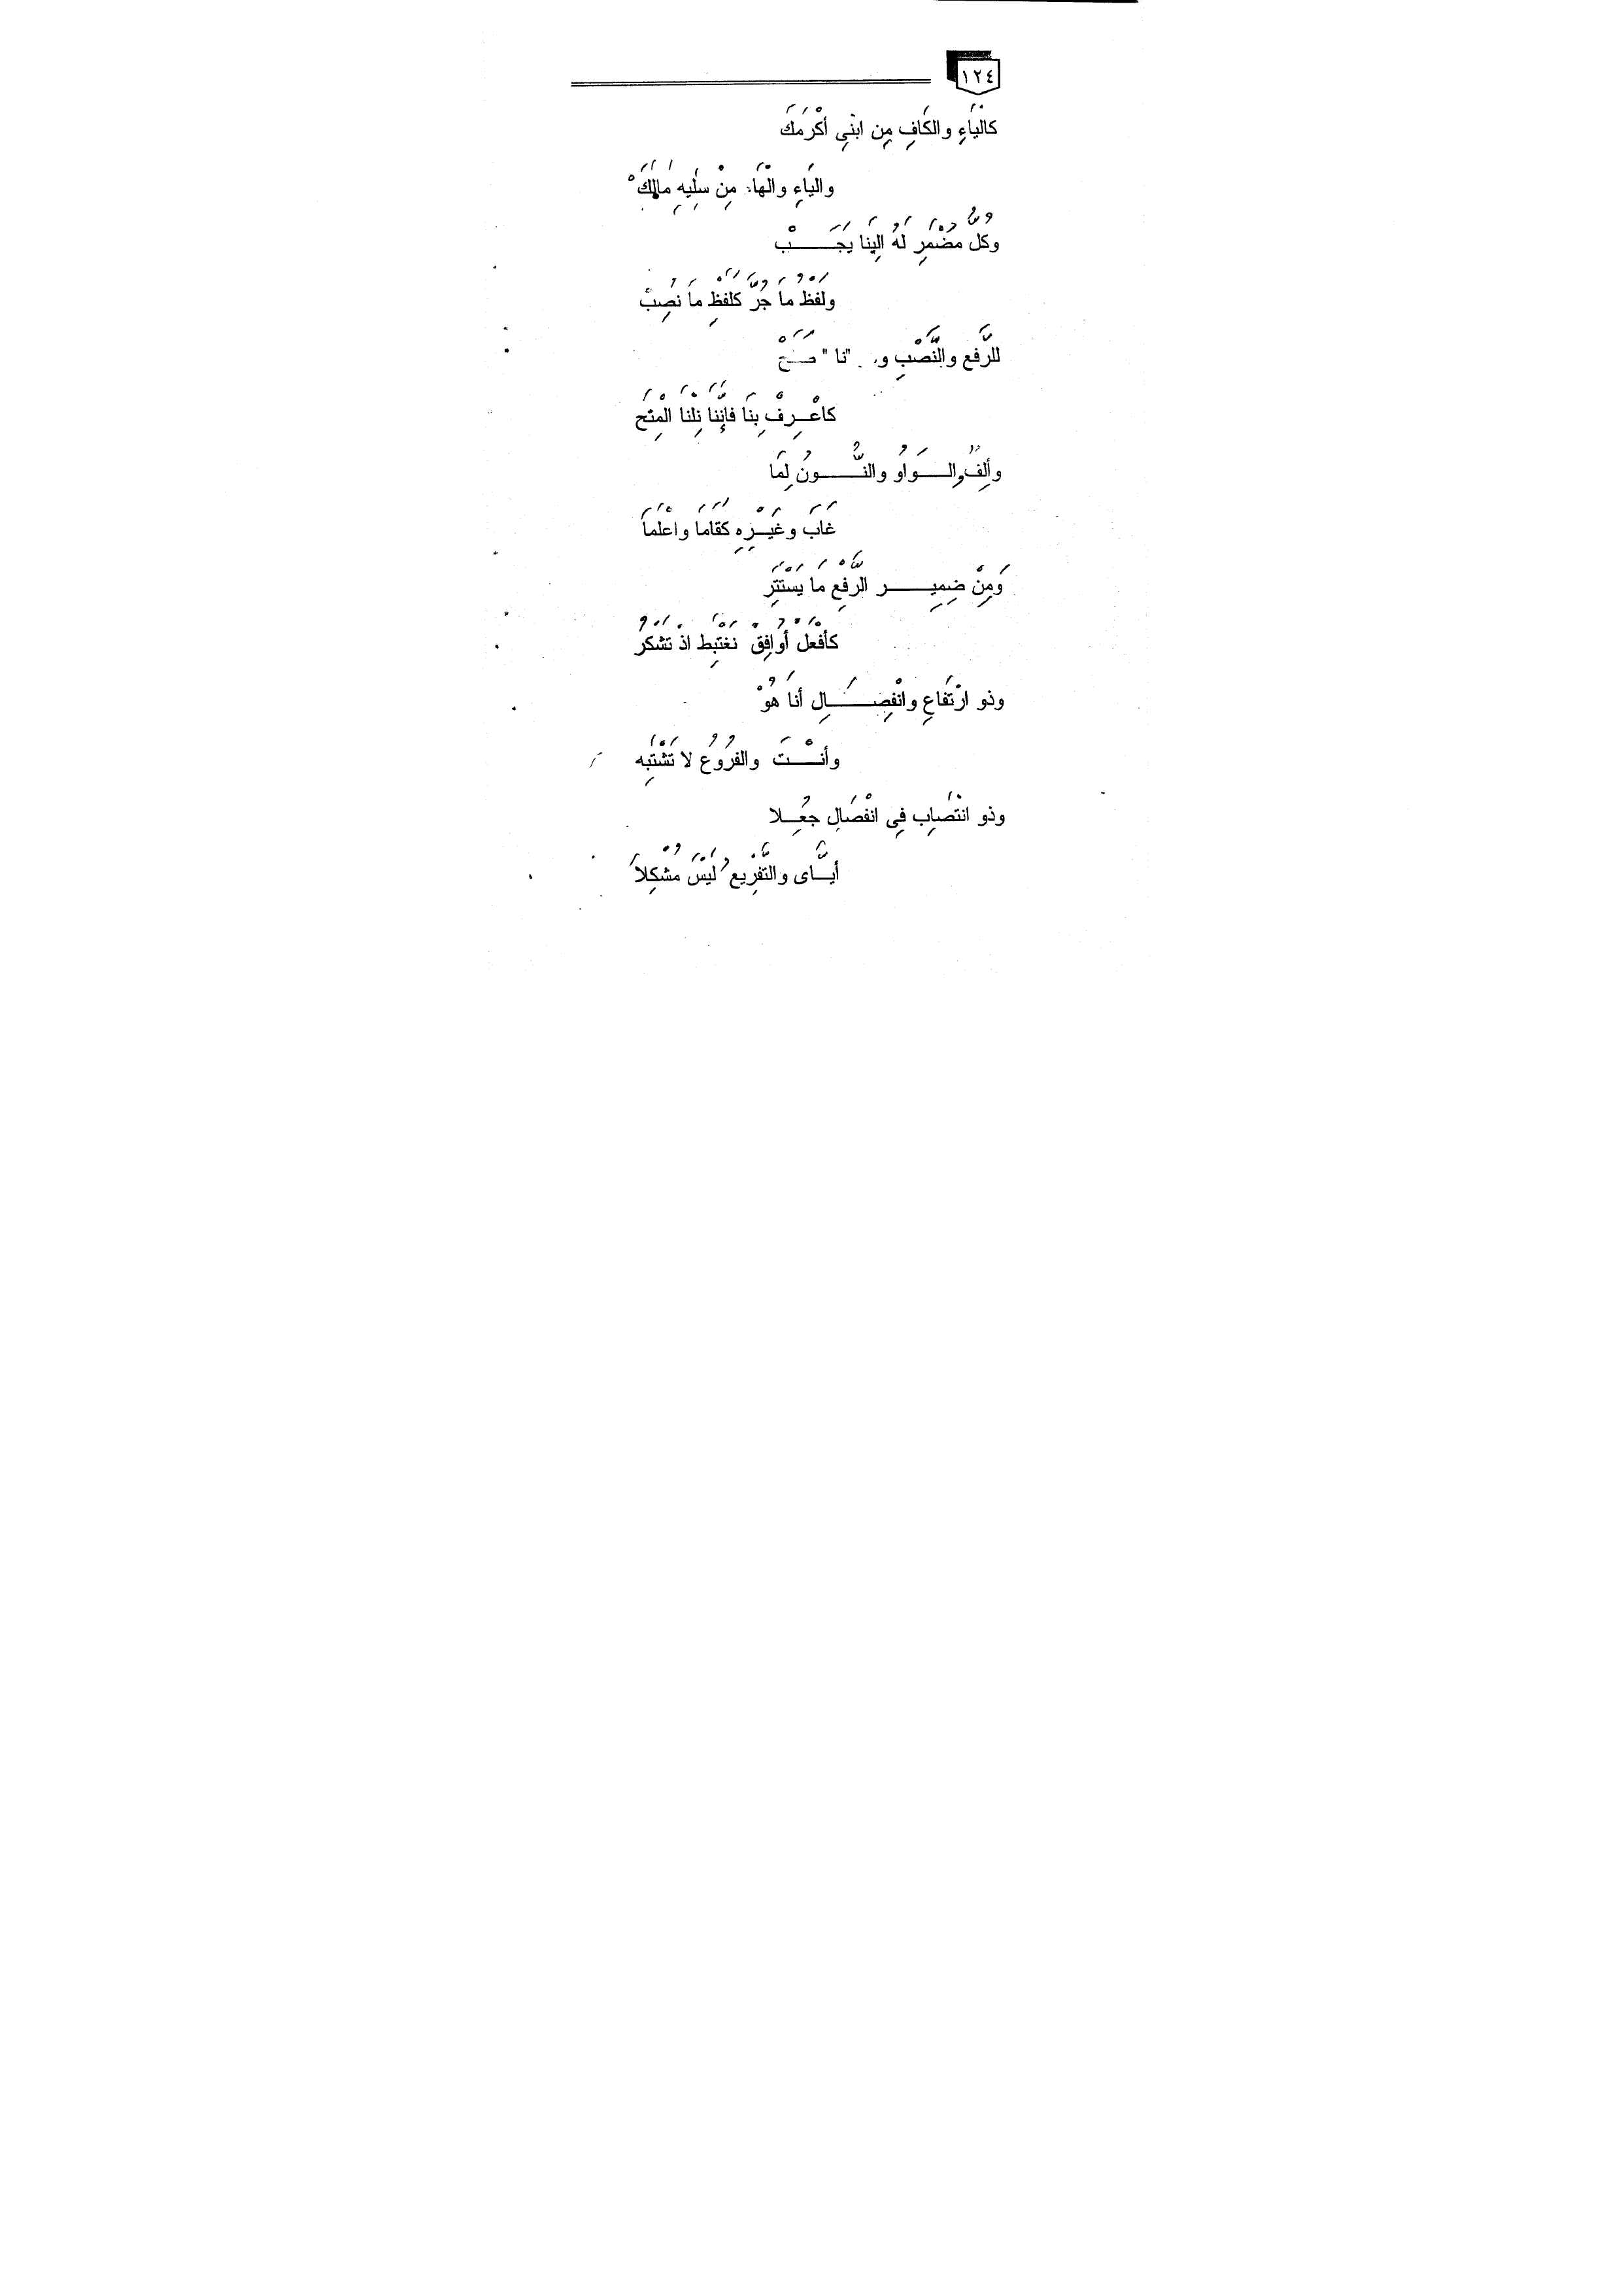 ١٢٤
كالْيَاءِ والكَافِ مِن ابْنِي أَكْرَمَكَ
واليَاءِ والْهَاءِ مِنْ سَلِيهِ مَا
وكُلُّ مُضْمَرٍ لَهُ الِينَا يَجَـــبْ
ولَفْظُ مَا جُرَّ كَلَفْظِ مَا نُصِبْ
للرَّفعِ والنَّصْبِ و "نا"
كاعْـرِفْ بِنَا فَإِنَّنَا نِلْنَا الْمِنَح
وأَلِفٌ والـــوَاوُ والنُّـــونُ لِمَا
غَابَ وغَيْـرِهِ كَقَامَا واعْلَمَا
وَمِنْ ضِمِيـــرِ الرَّفْعِ مَا يَسْتَتِرِ
كأَفْعَلْ أُوَافِقْ نَغْتَبِطْ اذْ تَشْكُرُ
وذو ارْتَفَاعِ وانْفِصَـــالٍ أَنَا هُوْ
وأنْـــتَ والفُرُوعُ لا تَشْتَبِه
وذو انْتَصَابٍ فِي انْفْصَالٍ جُعِـلا
أيَّـاى والتَّفْرِيعُ لَيْسَ مُشْكِلاَ